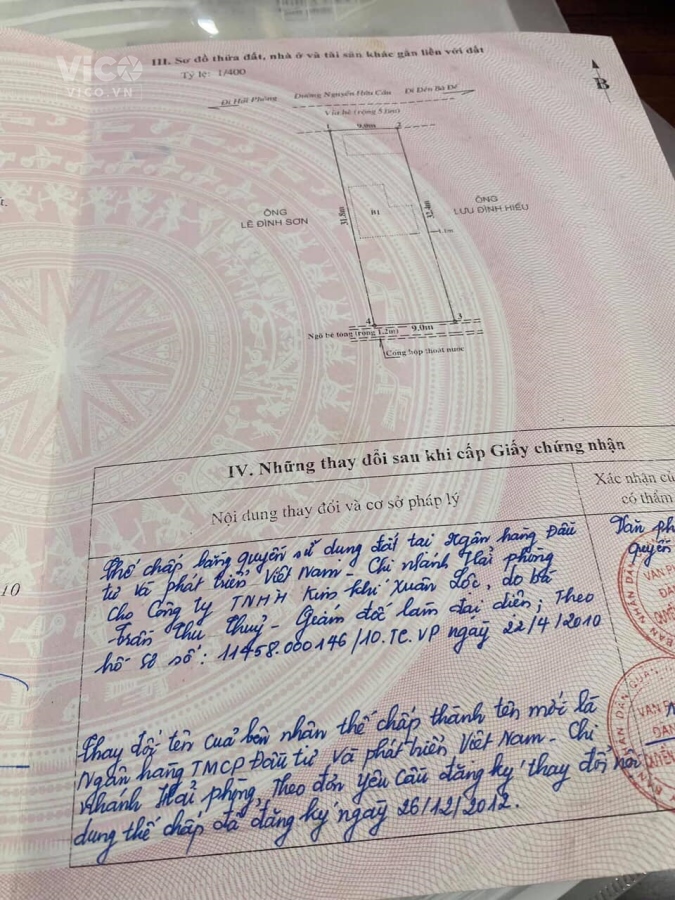 VICO
VICO.VN
III. Sơ đồ thửa đất, nhà ở và tài sản khác gắn liền với đất
Tỷ lệ: 1/400
B
Đi Hải Phòng Đường Nguyễn Hữu Cầu Đi Đền Bà Đế
Vỉa hè (rộng 5.1m)
1 9.0m 2
ÔNG
LÊ ĐÌNH SƠN
31.8m
B1
32.4m
1.1m
ÔNG
LƯU ĐÌNH HIẾU
4 9.0m 3
Ngõ bê tông (rộng 1.2m)
Cống hộp thoát nước
IV. Những thay đổi sau khi cấp Giấy chứng nhận
Nội dung thay đổi và cơ sở pháp lý
Xác nhận củ
có thẩm
Thế chấp bằng quyền sử dụng đất tại Ngân hàng Đầu
tư và phát triển Việt Nam - Chi nhánh Hải phòng
cho Công ty TNHH Kim khí Xuân Lộc, do bà
Trần Thu Thuỷ - Giám đốc làm đại diện; Theo
hồ sơ số: 11458.000146/10.TC.VP ngày 22/4/2010
Văn ph
quyền
10
Thay đổi tên của bên nhận thế chấp thành tên mới là
Ngân hàng TMCP Đầu tư và phát triển Việt Nam - Chi
nhánh Hải phòng, Theo đơn yêu cầu đăng ký thay đổi nội
dung thế chấp đã đăng ký ngày 26/12/2012.
VĂN P
ĐĂN
QUYỀN
BAN NHÂN DÂN
VĂN PH
ĐĂN
QUYỀN